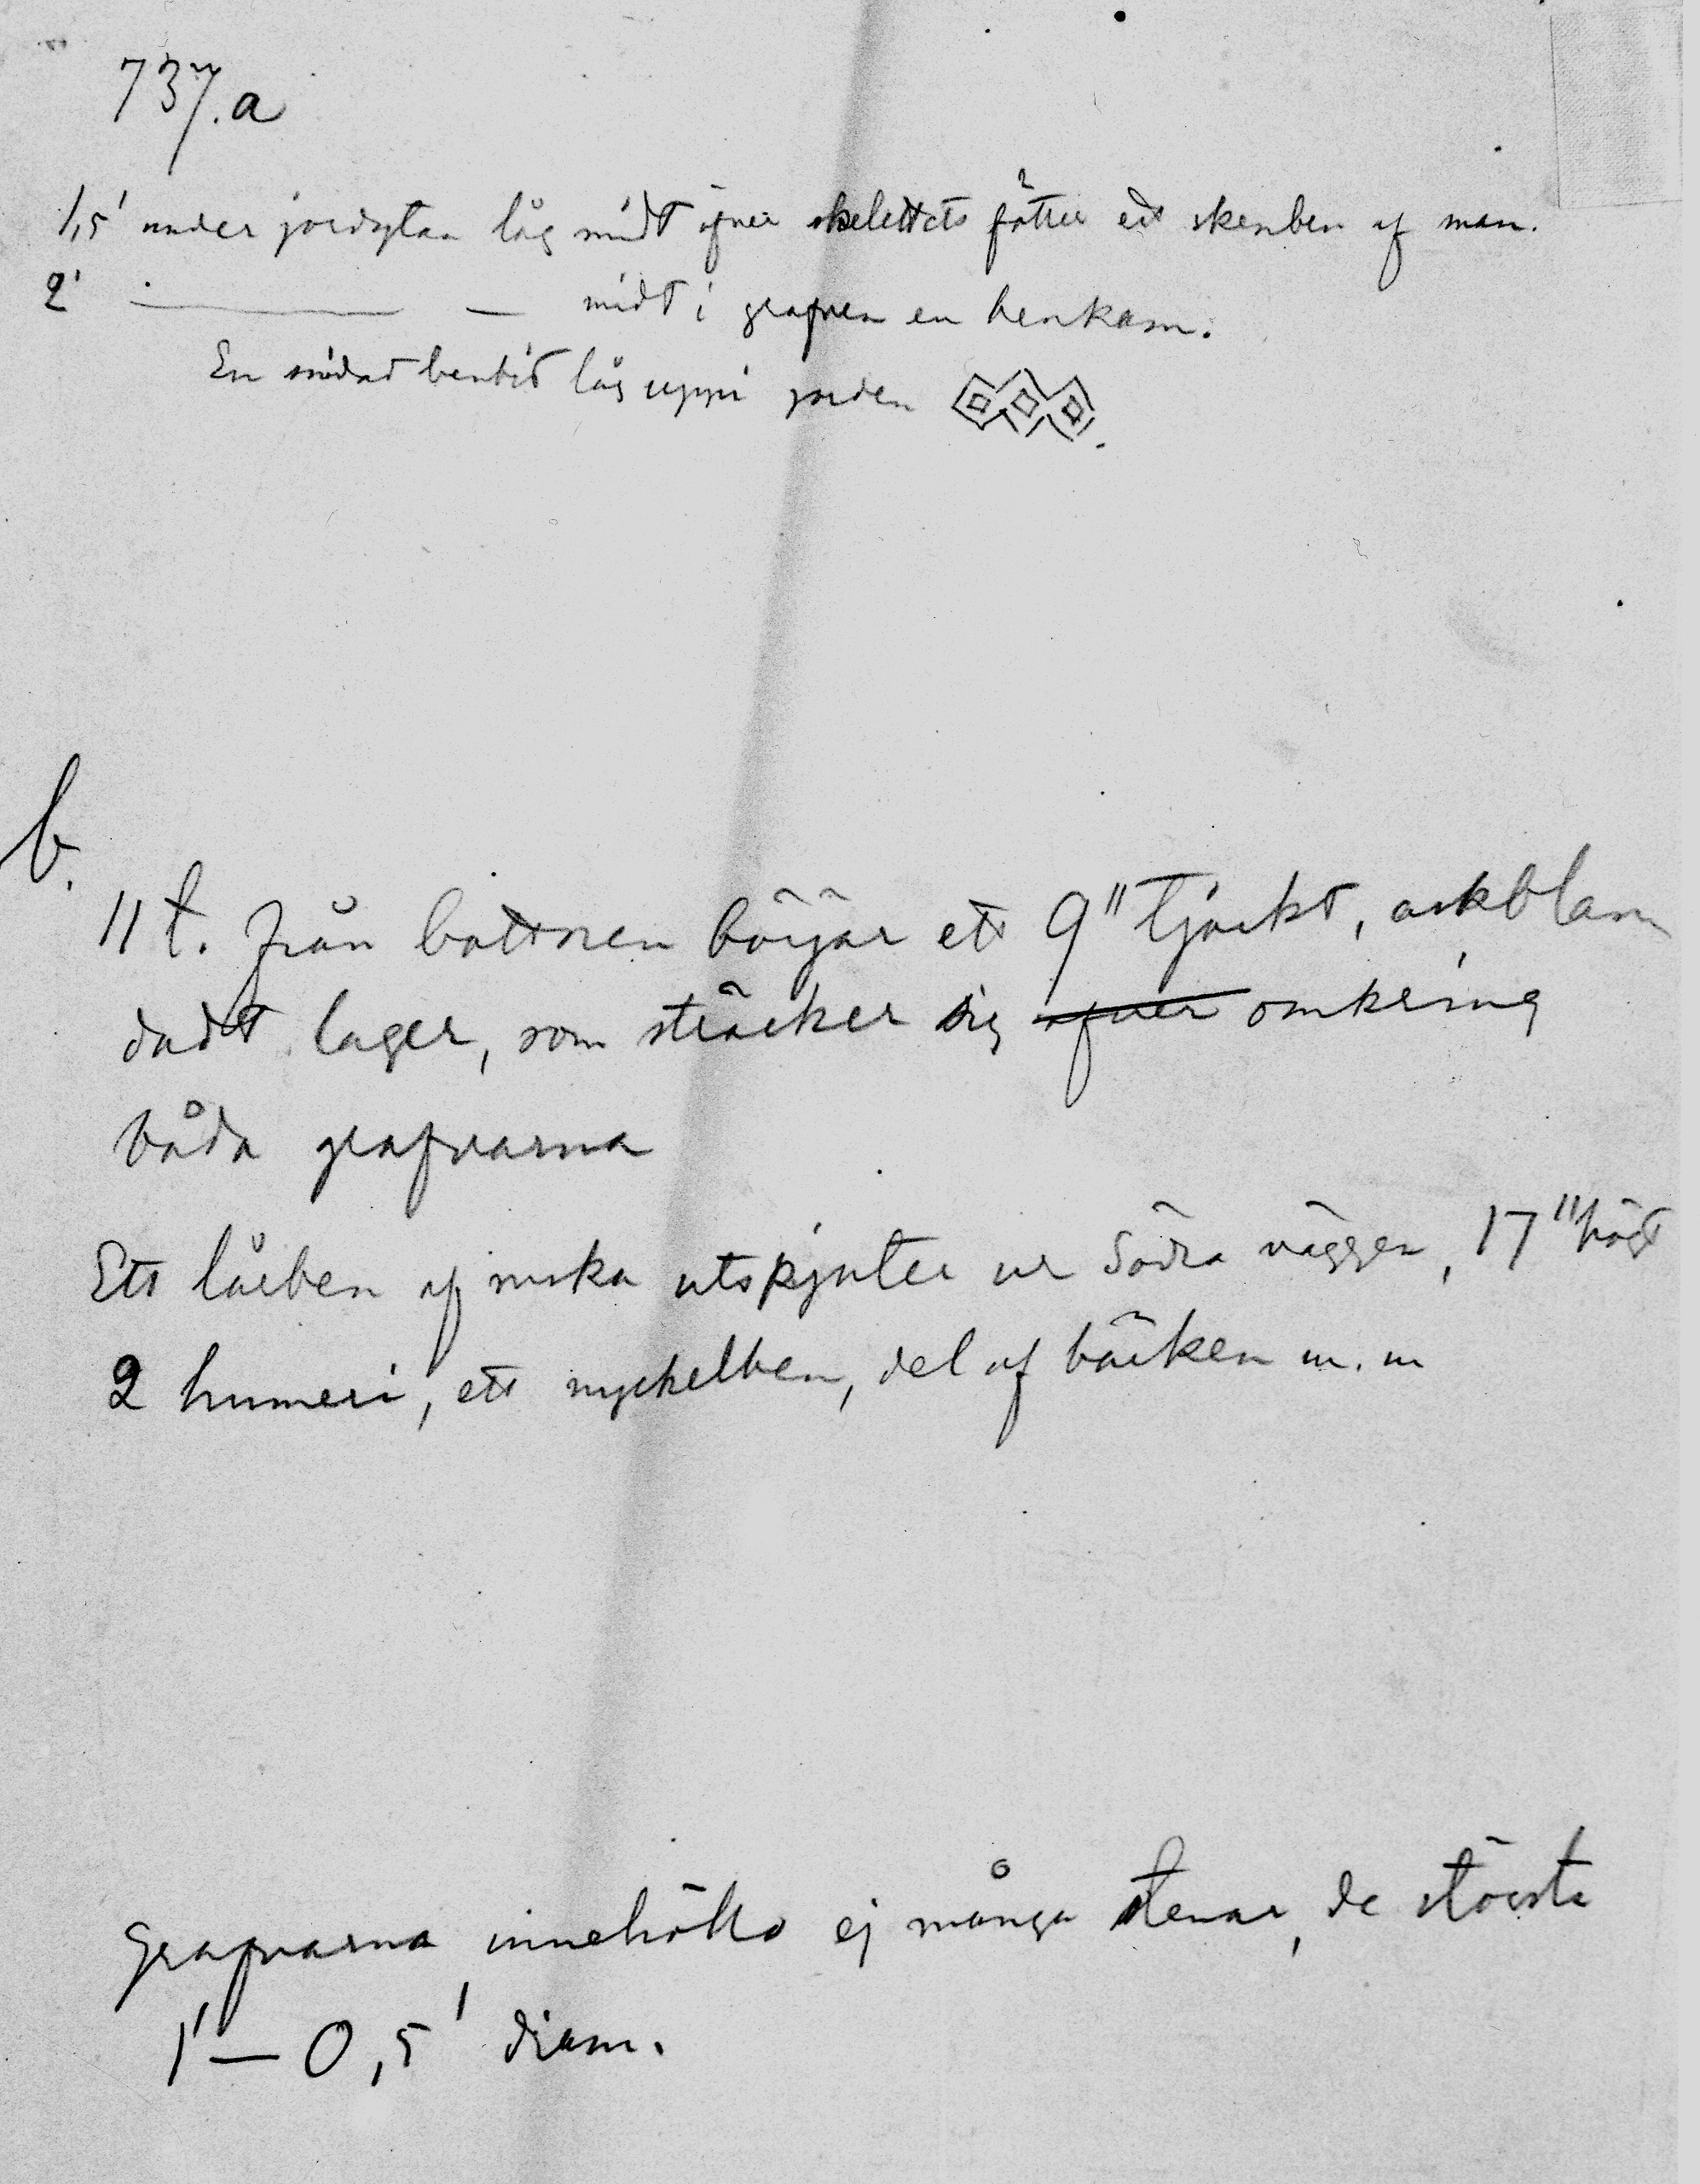 737.a
1,5' under jordytan låg midt öfver skelettets fötter ett skenben af man.
2' ———— — midt i grafven en benkam.
En sirad benbit låg uppi jorden
b.
11 t. från bottnen börjar ett 9" tjockt, askblan
dadt lager, som sträcker sig ofver omkring
båda grafvarna
Ett lårben af menska utskjuter ur Södra väggen, 17" högt
2 humeri, ett nyckelben, del af bäcken m.m
Grafvarna innehöllo ej många stenar, de största
1' — 0,5' diam.